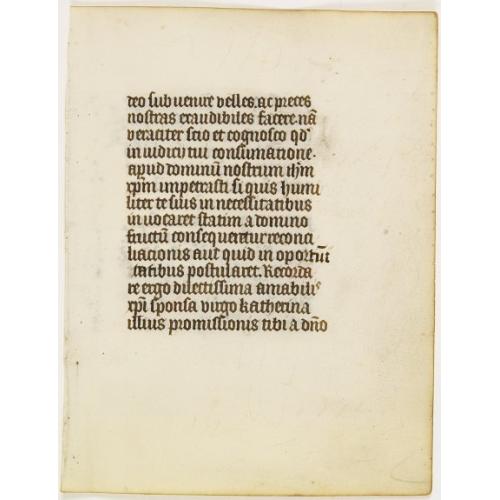 deo subuenire velles. ac preces
nostras exaudibiles facere. nā
veraciter scio et cognosco qd'
in iudicij tui consumatione.
apud dominū nostrum ihm
xpm impetrasti si quis humi
liter te suis in necessitatibus
inuocaret statim a domino
fructū consequeretur reconci
liacionis aut quid in oportūi
tatibus postularet. Recorda
re ergo dilectissima amabilis
xpi sponsa virgo katherina
illius promissionis tibi a dño